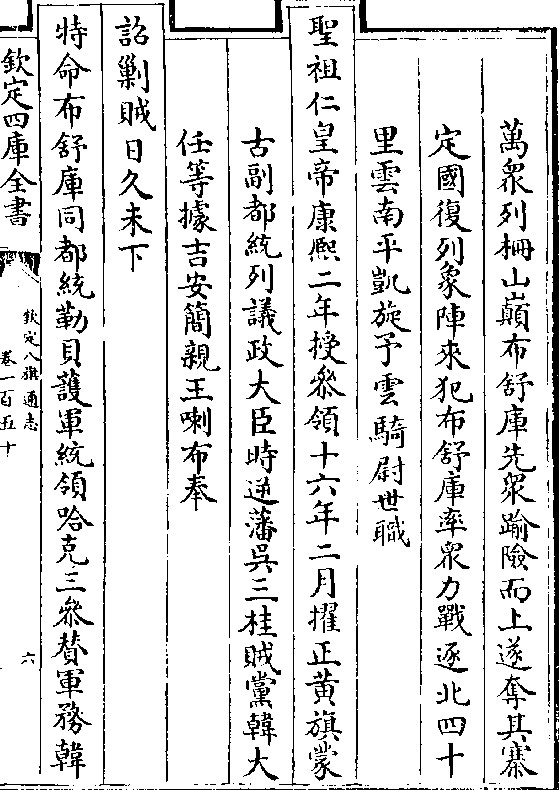 萬衆列柵山巔布舒庫先衆踰險而上遂奪其寨
定國復列象陣來犯布舒庫率衆力戰逐北四十
里雲南平凱旋予雲騎尉世職
聖祖仁皇帝康熙二年授叅領十六年二月擢正黃旗蒙
古副都統列議政大臣時逆藩吳三桂賊黨韓大
任等據吉安簡親王喇布奉
詔剿賊日久未下
特命布舒庫同都統勒貝護軍統領哈克三叅贊軍務韓
欽定四庫全書
欽定八旗通志
卷一百五十
六